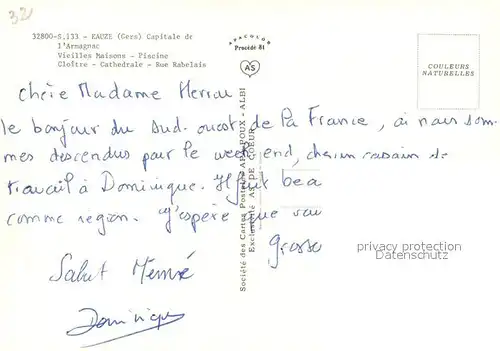 32
32800-S.133 - EAUZE (Gers) Capitale de
l'Armagnac
Vieilles Maisons - Piscine
Cloître - Cathedrale - Rue Rabelais
APACOLOR
Procédé 81
AS
COULEURS
NATURELLES
Chère Madame
le bonjour du Sud. ouest de la France, où nous som-
mes descendus pour le week end, chez un copain de
travail à Dominique. Il fait bea
comme région. J'espère que vou
Grosse
Salut Mémé
Dominique
Société des Cartes Postales APA-POUX - ALBI
Exclusivité AS DE COEUR
privacy protection
Datenschutz